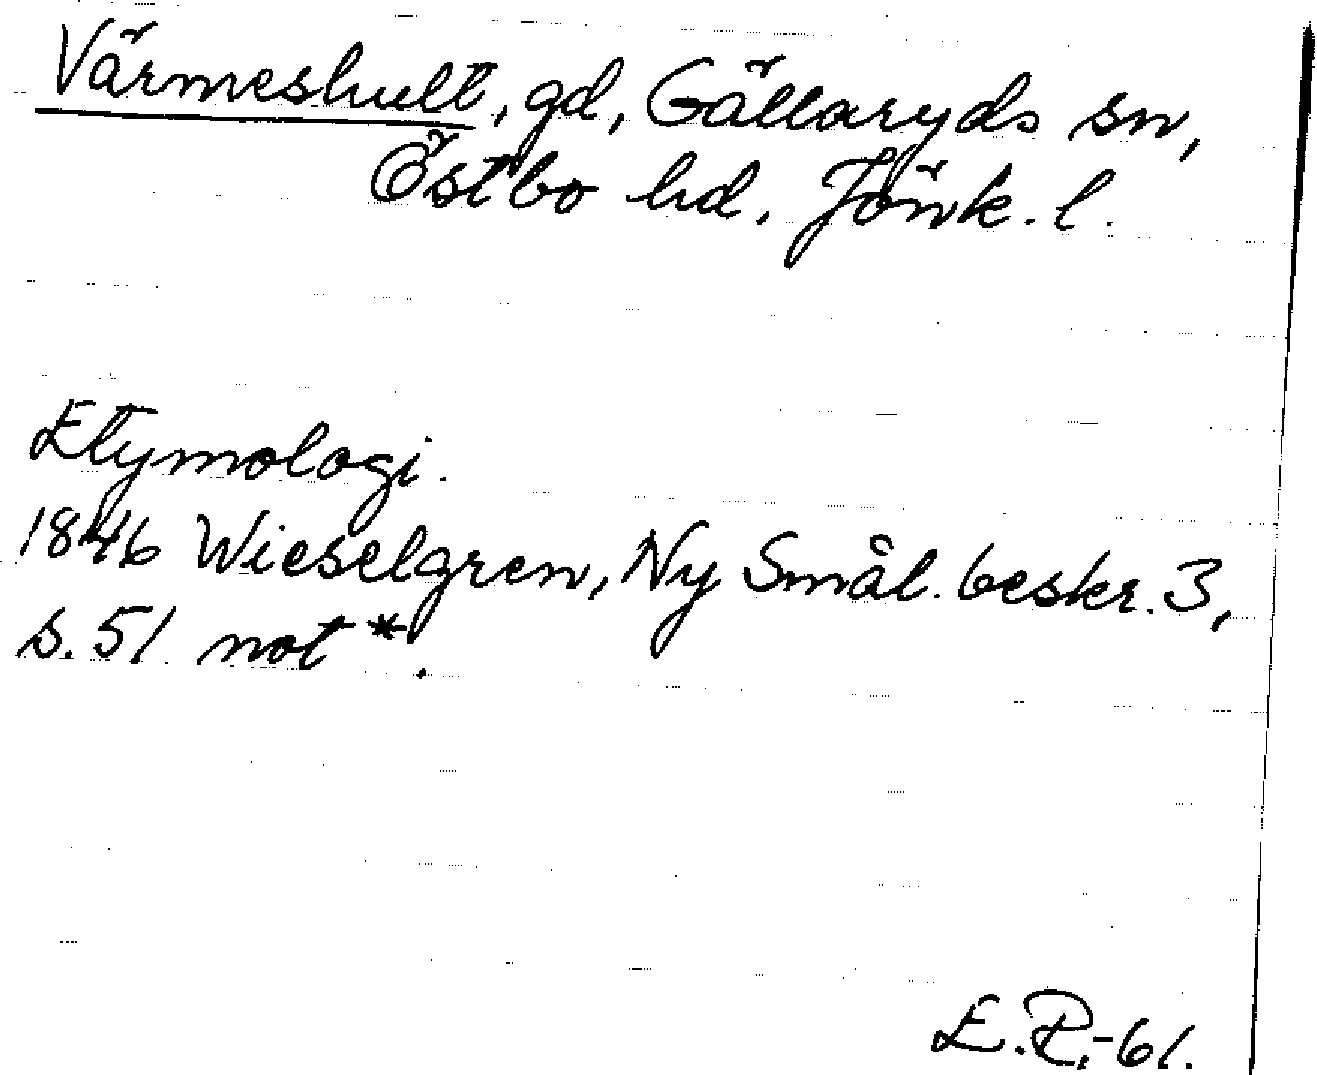 Värmeshult, gd, Gällaryds sn,
Östbo hd. Jönk. l.
Etymologi.
1846 Wieselgren, Ny Smål. beskr. 3,
s. 51 not *.
E.P.-61.